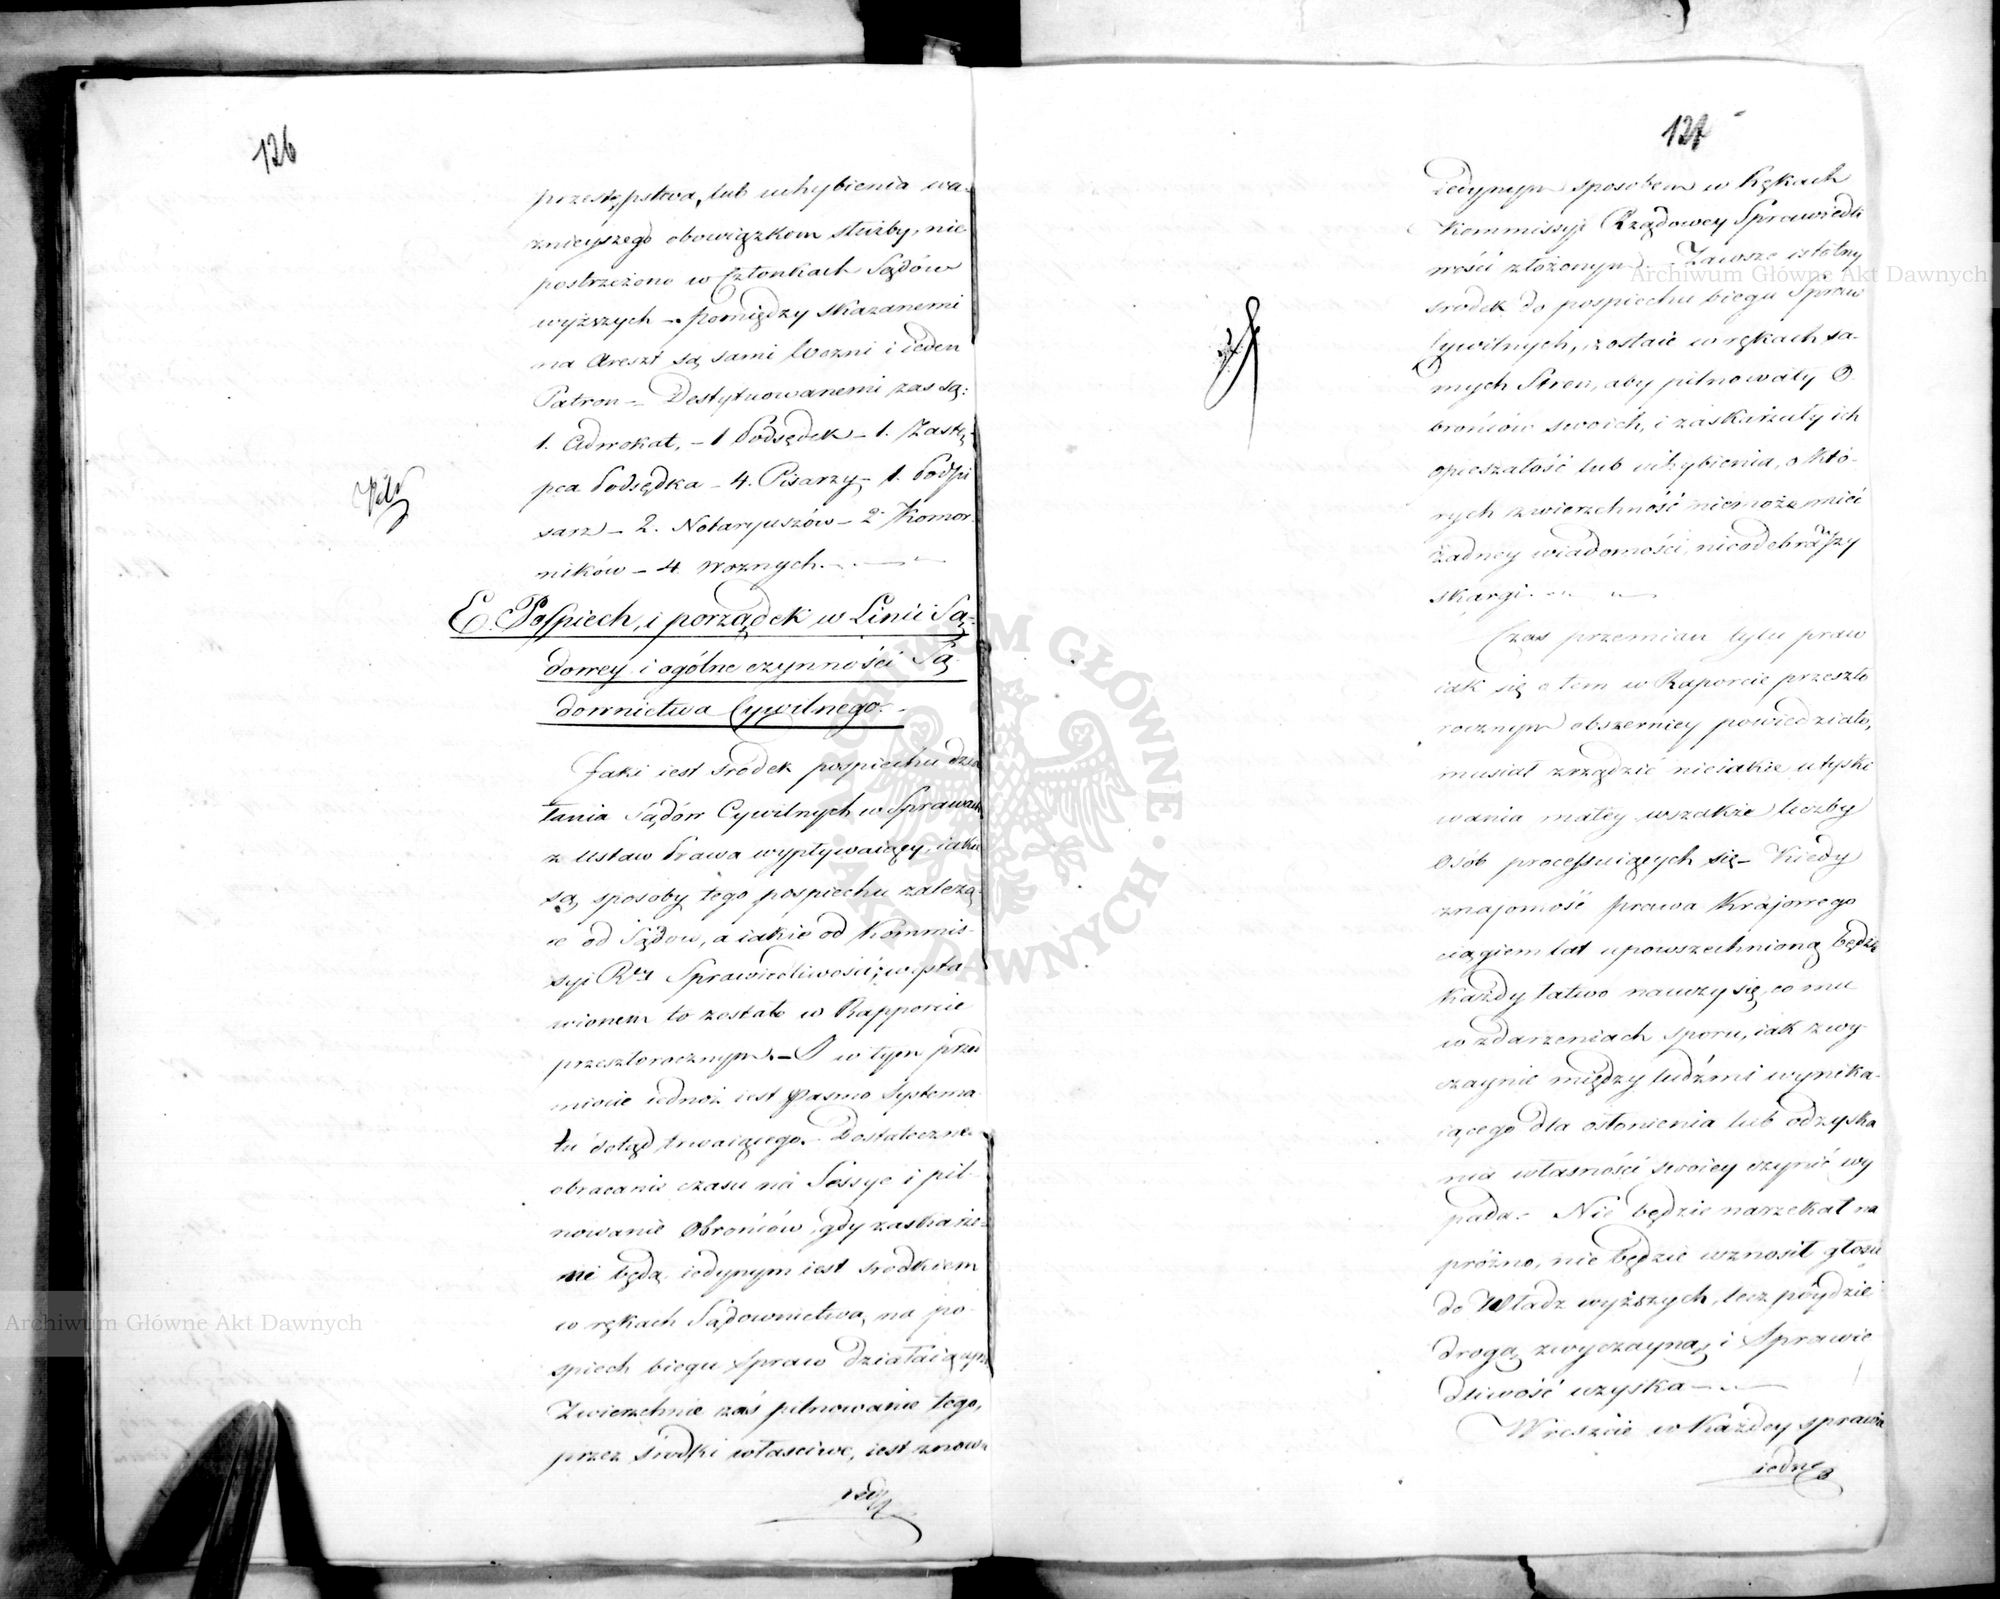 126
przestępstwa, lub uchybienia wa-
żnieyszego obowiązkom służby, nie
postrzeżono w Członkach Sądów
wyższych – pomiędzy skazanemi
na Areszt są sami Wozni i ieden
Patron – Destytuowanemi zas są:
1. Adwokat, – 1 Podsędek – 1. Zastę-
pca Podsędka – 4. Pisarzy – 1. Podpi
sarz – 2. Notaryuszów – 2 Komor-
ników – 4 Woznych.
E. Pospiech, i porządek w Linii Są-
dowey i ogólne czynności Są-
downictwa Cywilnego.
Jaki iest środek pospiechu dzia
łania Sądów Cywilnych w Sprawach
z Ustaw Prawa wypływaiący, iakie
są sposoby tego pospiechu zależą-
ce od Sądow, a iakie od Kommis-
syi Rwey Sprawiedliwości; wysta
wionem to zostało w Rapporcie
przeszłorocznym. – I w tym przed
miocie iednoż iest pasmo Systema
tu dotąd trwaiącego. – Dostateczne
obracanie czasu na Sessye i pil-
nowanie Obrońców, gdy zaskarże-
ni będą iedynym iest srodkiem
w rękach Sądownictwa, na po-
spiech biegu Spraw działaiącym
Zwierzchnie zaś pilnowanie tego,
przez środki właściwe, iest znowu
iedy
127
iedynym sposobem w Rękach
Kommissyi Rządowey Sprawiedli
wości złożonym. – Zawsze istotny
srodek do pospiechu biegu Spraw
Cywilnych, zostaie w rękach sa-
mych Stron, aby pilnowały O-
brońców swoich, i zaskarżały ich
opieszałość lub uchybienia, o któ-
rych zwierzchność niemoże mieć
żadney wiadomości, nieodebrawszy
skargi.
Czas przemian tylu praw
iak się o tem w Raporcie przeszło
rocznym obszerniey powiedziało,
musiał zrządzić nieiakie utyski
wania małey wszakże liczby
Osób processuiących się – Kiedy
znajomość prawa Krajowego
ciągiem lat upowszechnioną będzie
Każdy łatwo nauczy się, co mu
w zdarzeniach sporu, iak zwy-
czaynie między ludźmi wynika-
iącego dla osłonienia lub odzyska
nia własności swoiey czynić wy
pada. – Nie będzie narzekał na
próżno, nie będzie wznosił głosu
do Władz wyższych, lecz póydzie
drogą zwyczayną, i Sprawie
dliwość uzyska
Wreszcie w każdey sprawie
iedne
Archiwum Główne Akt Dawnych
Archiwum Główne Akt Dawnych
ARCHIWUM GŁÓWNE AKT DAWNYCH